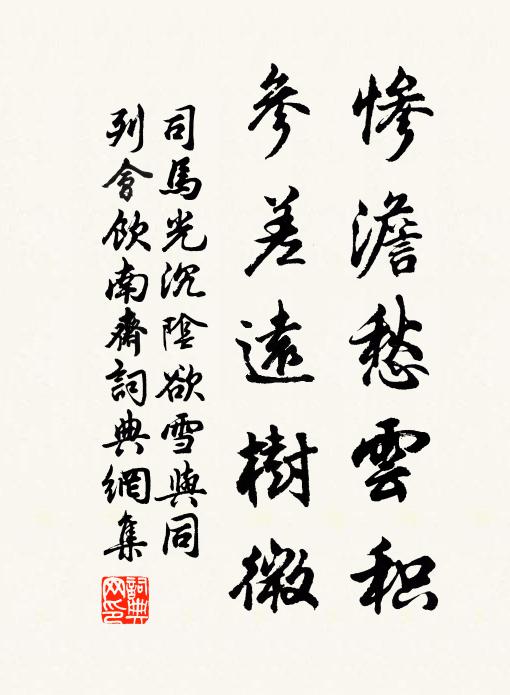 惨澹愁雲积
參差遠樹微
司馬光沉陰欲雪與同
列會飲南齋詞典網集
詞典网印